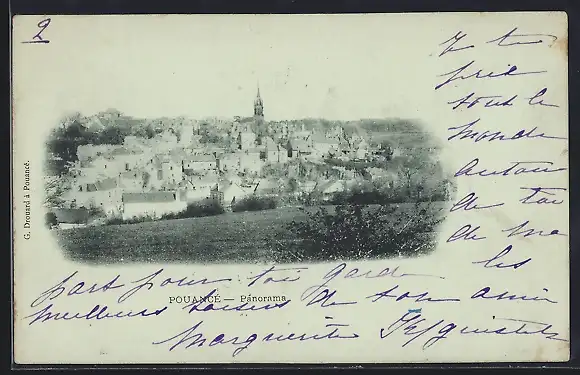 2
Je te
prie
tout le
monde
autour
de toi
de ma
part pour toi garde les
meilleurs baisers de ton amie
Marguerite
POUANCÉ — Panorama
G. Drouard à Pouancé.